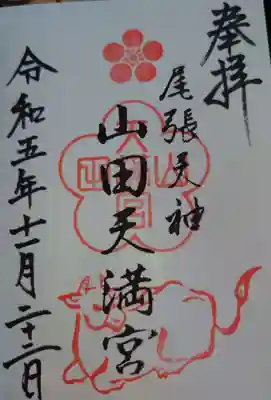 奉拝
尾張天神
山田天満宮
令和五年十一月二十二日